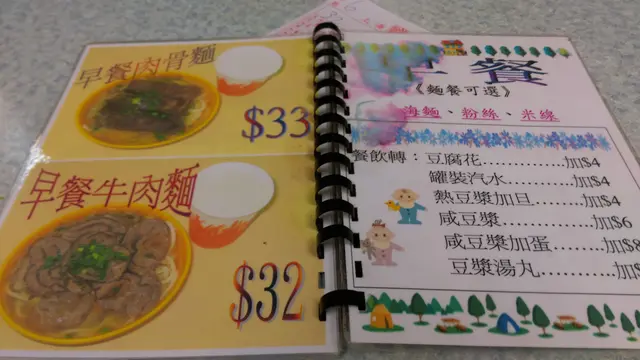 早餐肉骨麵
$33
早餐牛肉麵
$32
早餐
《麵餐可選》
海麵、粉絲、米線
餐飲轉：豆腐花............加$4
罐裝汽水............加$4
熱豆漿加旦.........加$4
咸豆漿...............加$6
咸豆漿加蛋.........加$8
豆漿湯丸............加$